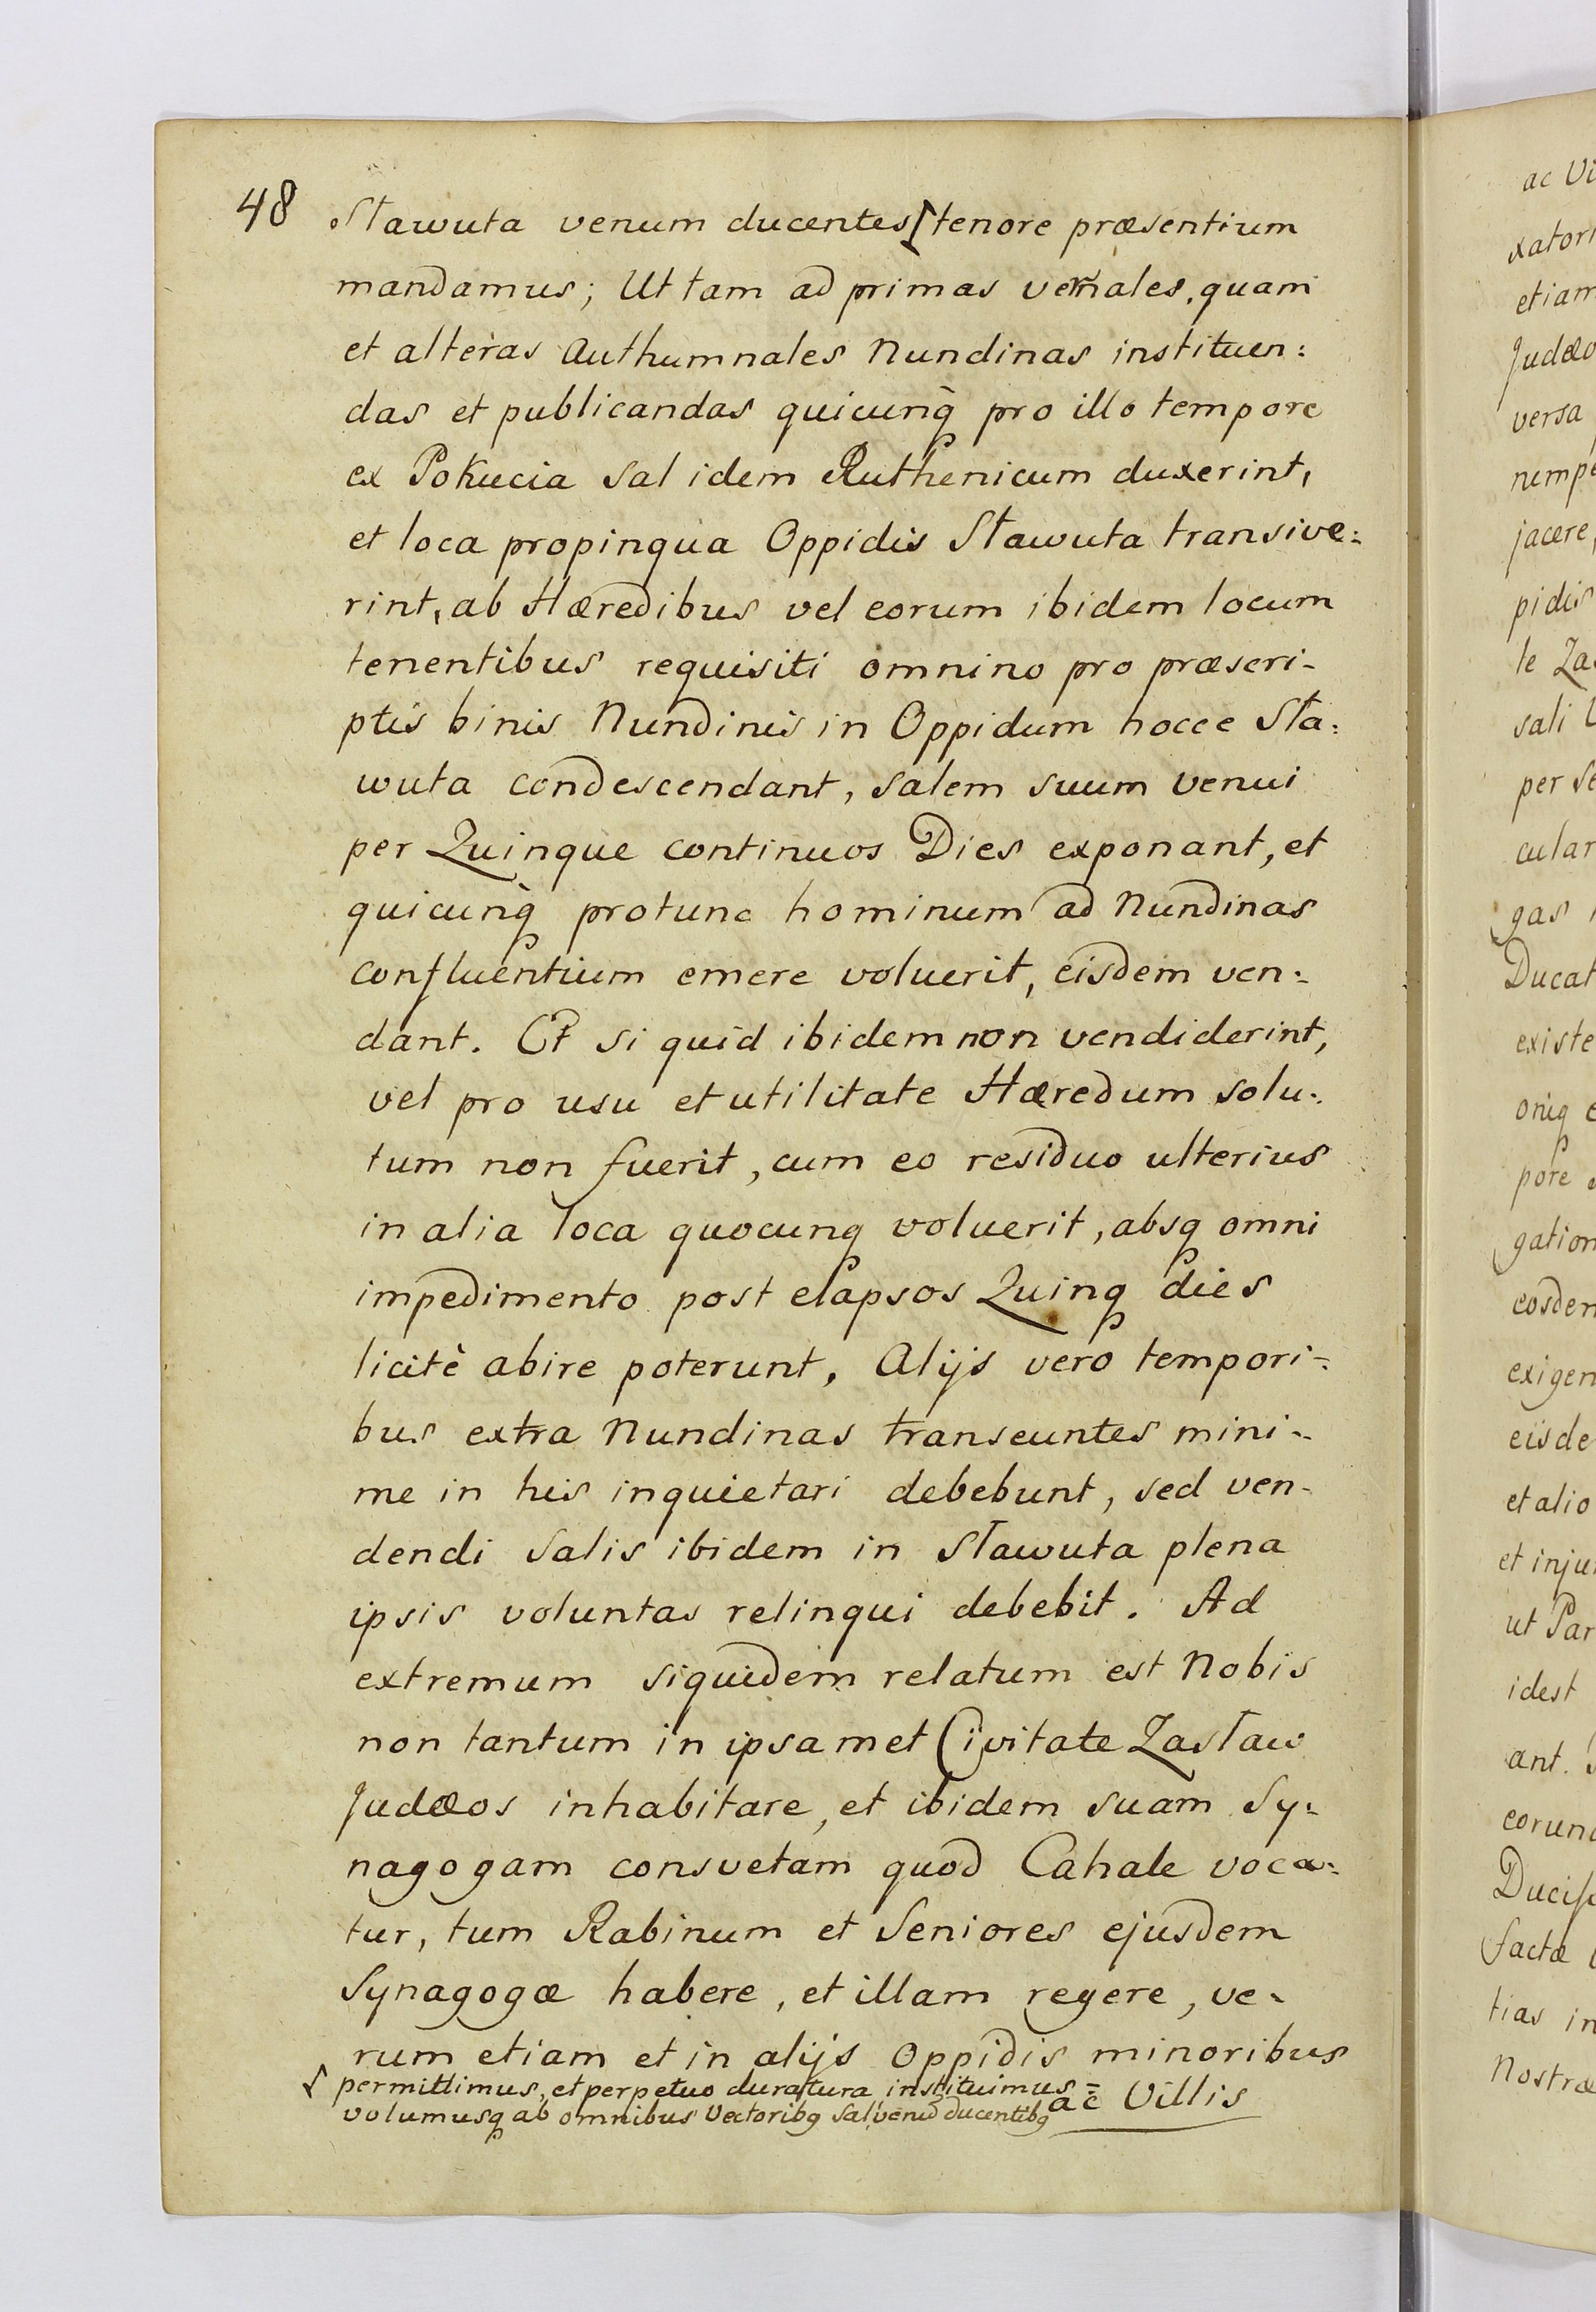 48
Sławuta venum ducentes ⌠ tenore præsentium
mandamus; Ut tam ad primas vernales, quam
et alteras Authumnales Nundinas instituen:
das et publicandas quicunq̀ pro illo tempore
ex Pokucia Sal idem Ruthenicum duxerint,
et loca propinqua Oppidis Sławuta transive:
rint, ab Hæredibus vel eorum ibidem locum
tenentibus requisiti omnino pro præscri-
ptis binis Nundinis in Oppidum hocce Sła:
wuta condescendant, salem suum venui
per Quinque continuos Dies exponant, et
quicunq̀ protunc hominum ad Nundinas
confluentium emere voluerit, eisdem ven:
dant. Et si quid ibidem non vendiderint,
vel pro usu et utilitate Hæredum solu:
tum non fuerit, cum eo residuo ulterius
in alia loca quocunq voluerit, absq omni
impedimento post elapsos Quinq dies
licitè abire poterunt, Alijs vero tempori:
bus extra Nundinas transeuntes mini:
me in his inquietari debebunt, sed ven-
dendi Salis ibidem in Sławuta plena
ipsis voluntas relinqui debebit. Ad
extremum siquidem relatum est Nobis
non tantum in ipsamet Civitate Zasław
Judæos inhabitare, et ibidem suam Sy:
nagogam consvetam quod Cahale voca:
tur, tum Rabinum et Seniores ejusdem
Synagogæ habere, et illam regere, ve-
rum etiam et in alijs Oppidis minoribus
⌠ permittimus, et perpetuo duratura instituimus =
volumusq ab omnibus Vectoribq Sal venū ducentibq
ac Villis
ac Vi
xatori
etiam
Judæo
versa
nempe
jacere,
pidis
te Za
sali
per Se
cular
gas
Ducat
existe
oniq
pore
gation
eosdem
exigen
eisde
et alio
et inju
ut Par
idest
ant.
corund
Factæ
tias in
Nostræ